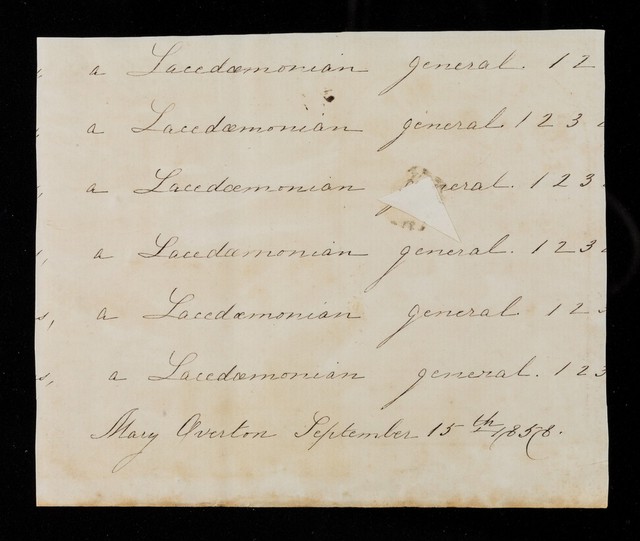 a Lacedæmonian general. 1 2
a Lacedæmonian general 1 2 3
a Lacedæmonian general. 1 2 3
a Lacedæmonian general. 1 2 3
s, a Lacedæmonian general 1 2
s, a Lacedæmonian general. 1 2 3
Mary Overton September 15th 1858.